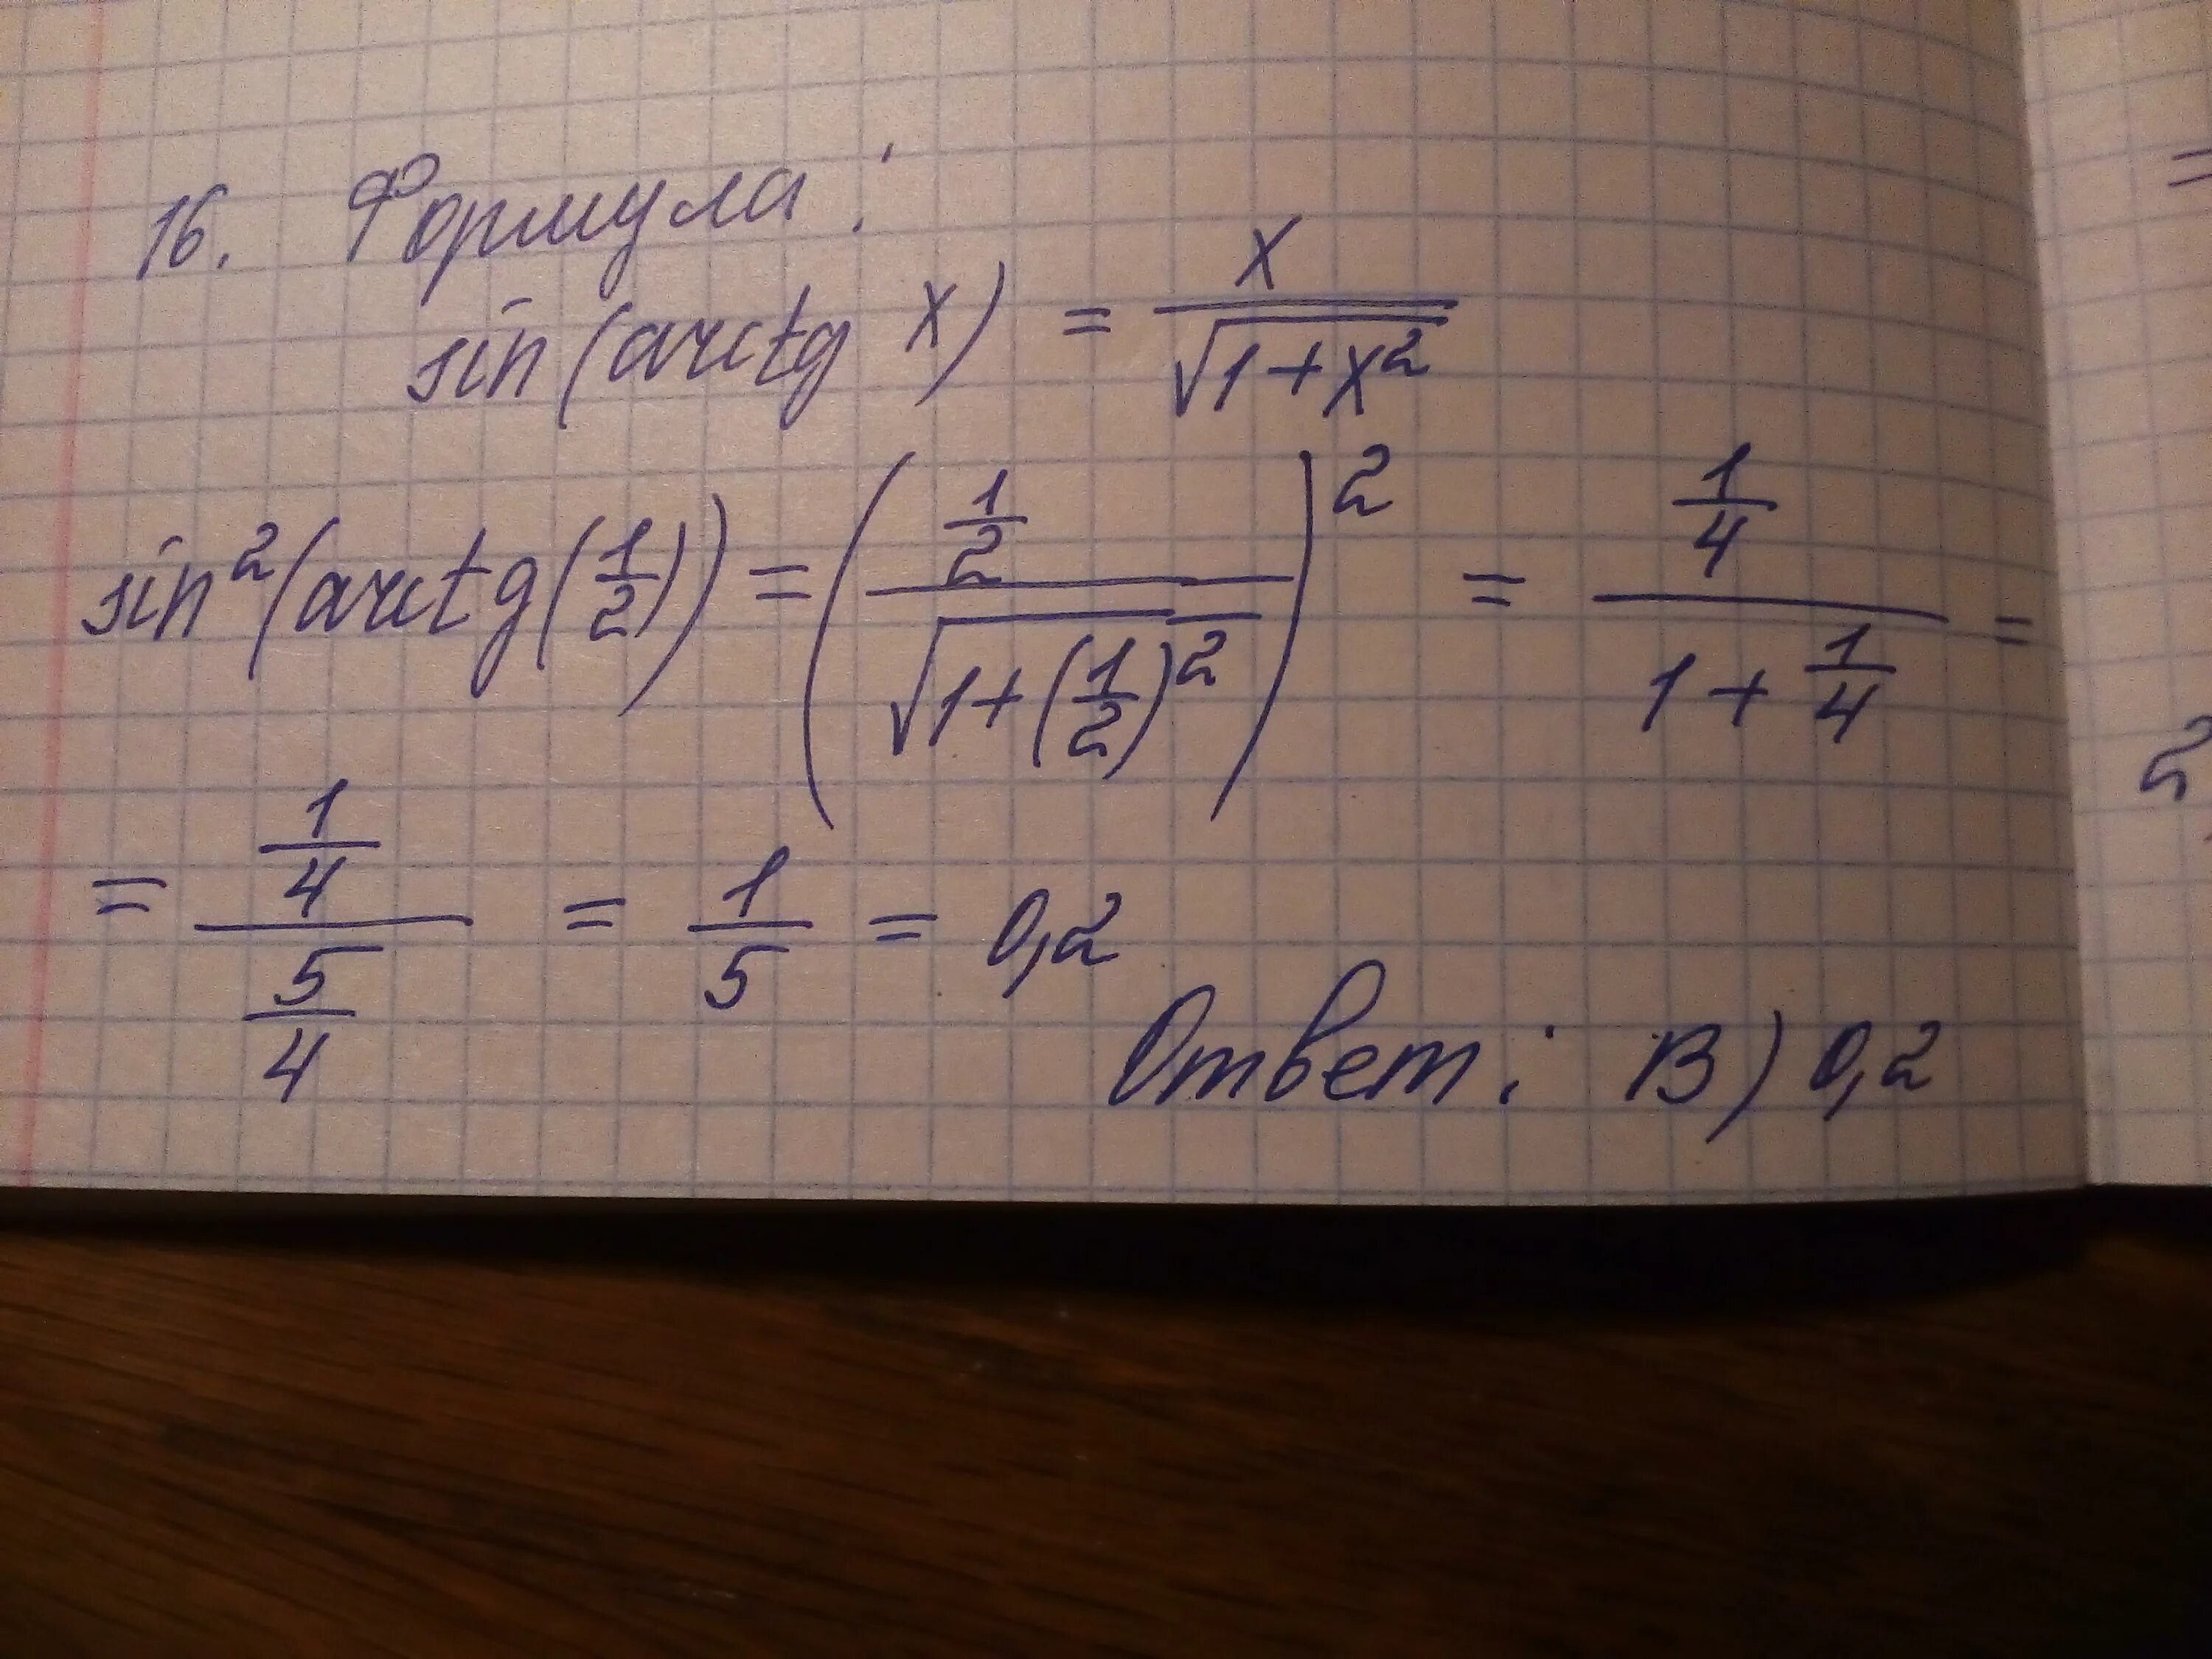 16. Формула:
sin(arctg x) = x/√(1+x²)
sin²(arctg(1/2)) = ((1/2)/√(1+(1/2)²))² = (1/4)/(1+1/4) =
= (1/4)/(5/4) = 1/5 = 0,2
Ответ: В) 0,2
=
2